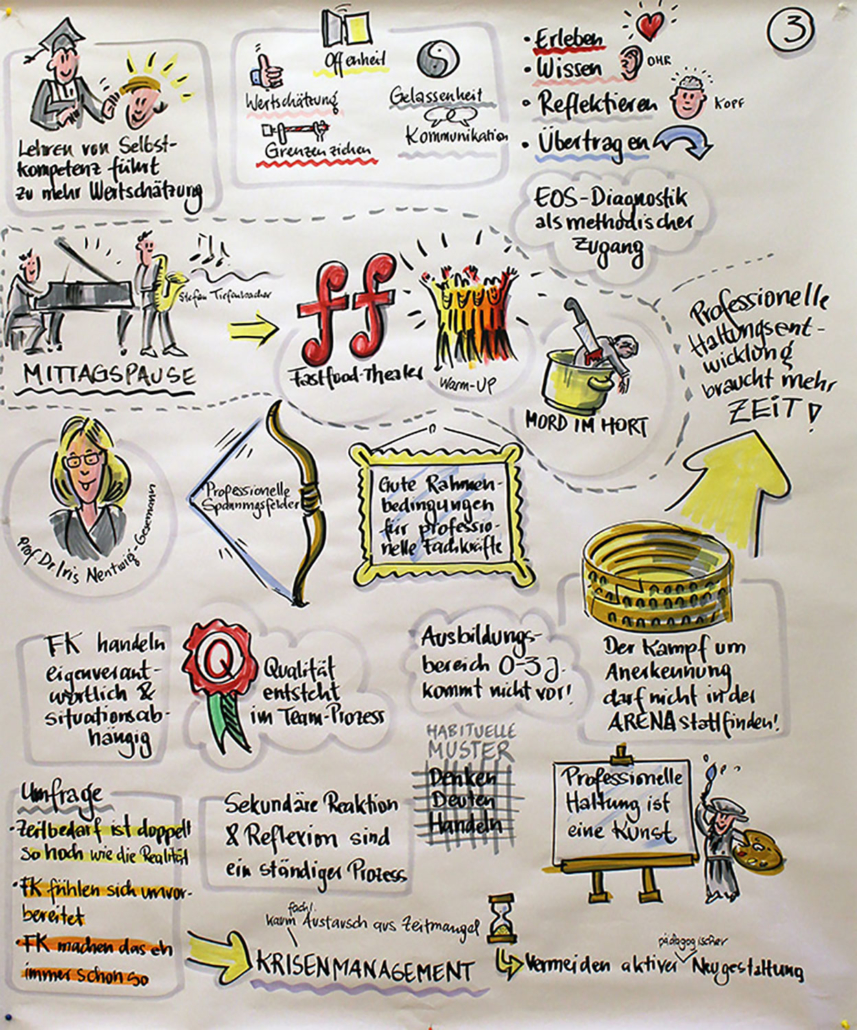 3
Lehren von Selbst-
kompetenz führt
zu mehr Wertschätzung
Offenheit
Wertschätzung
Gelassenheit
Grenzen ziehen
Kommunikation
• Erleben
• Wissen OHR
• Reflektieren Kopf
• Übertragen
EOS-Diagnostik
als methodischer
Zugang
Stefan Tiefenbacher
MITTAGSPAUSE
ff
Fastfood-Theater
Warm-UP
MORD IM HORT
Professionelle
Haltungsent-
wicklung
braucht mehr
ZEIT!
Prof Dr. Iris Nentwig-Gesemann
Professionelle
Spannungsfelder
Gute Rahmen-
bedingungen
für professio-
nelle Fachkräfte
FK handeln
eigenverant-
wortlich &
situationsab-
hängig
Q
Qualität
entsteht
im Team-Prozess
Ausbildungs-
bereich 0-3 J.
kommt nicht vor!
Der Kampf um
Anerkennung
darf nicht in der
ARENA stattfinden!
HABITUELLE
MUSTER
Denken
Deuten
Handeln
Professionelle
Haltung ist
eine Kunst
Umfrage
• Zeitbedarf ist doppelt
so hoch wie die Realität
• FK fühlen sich unvor-
bereitet
• FK machen das eh
immer schon so
Sekundäre Reaktion
& Reflexion sind
ein ständiger Prozess
fachl.
kaum Austausch aus Zeitmangel
KRISENMANAGEMENT
pädagogischer
Vermeiden aktiver Neugestaltung